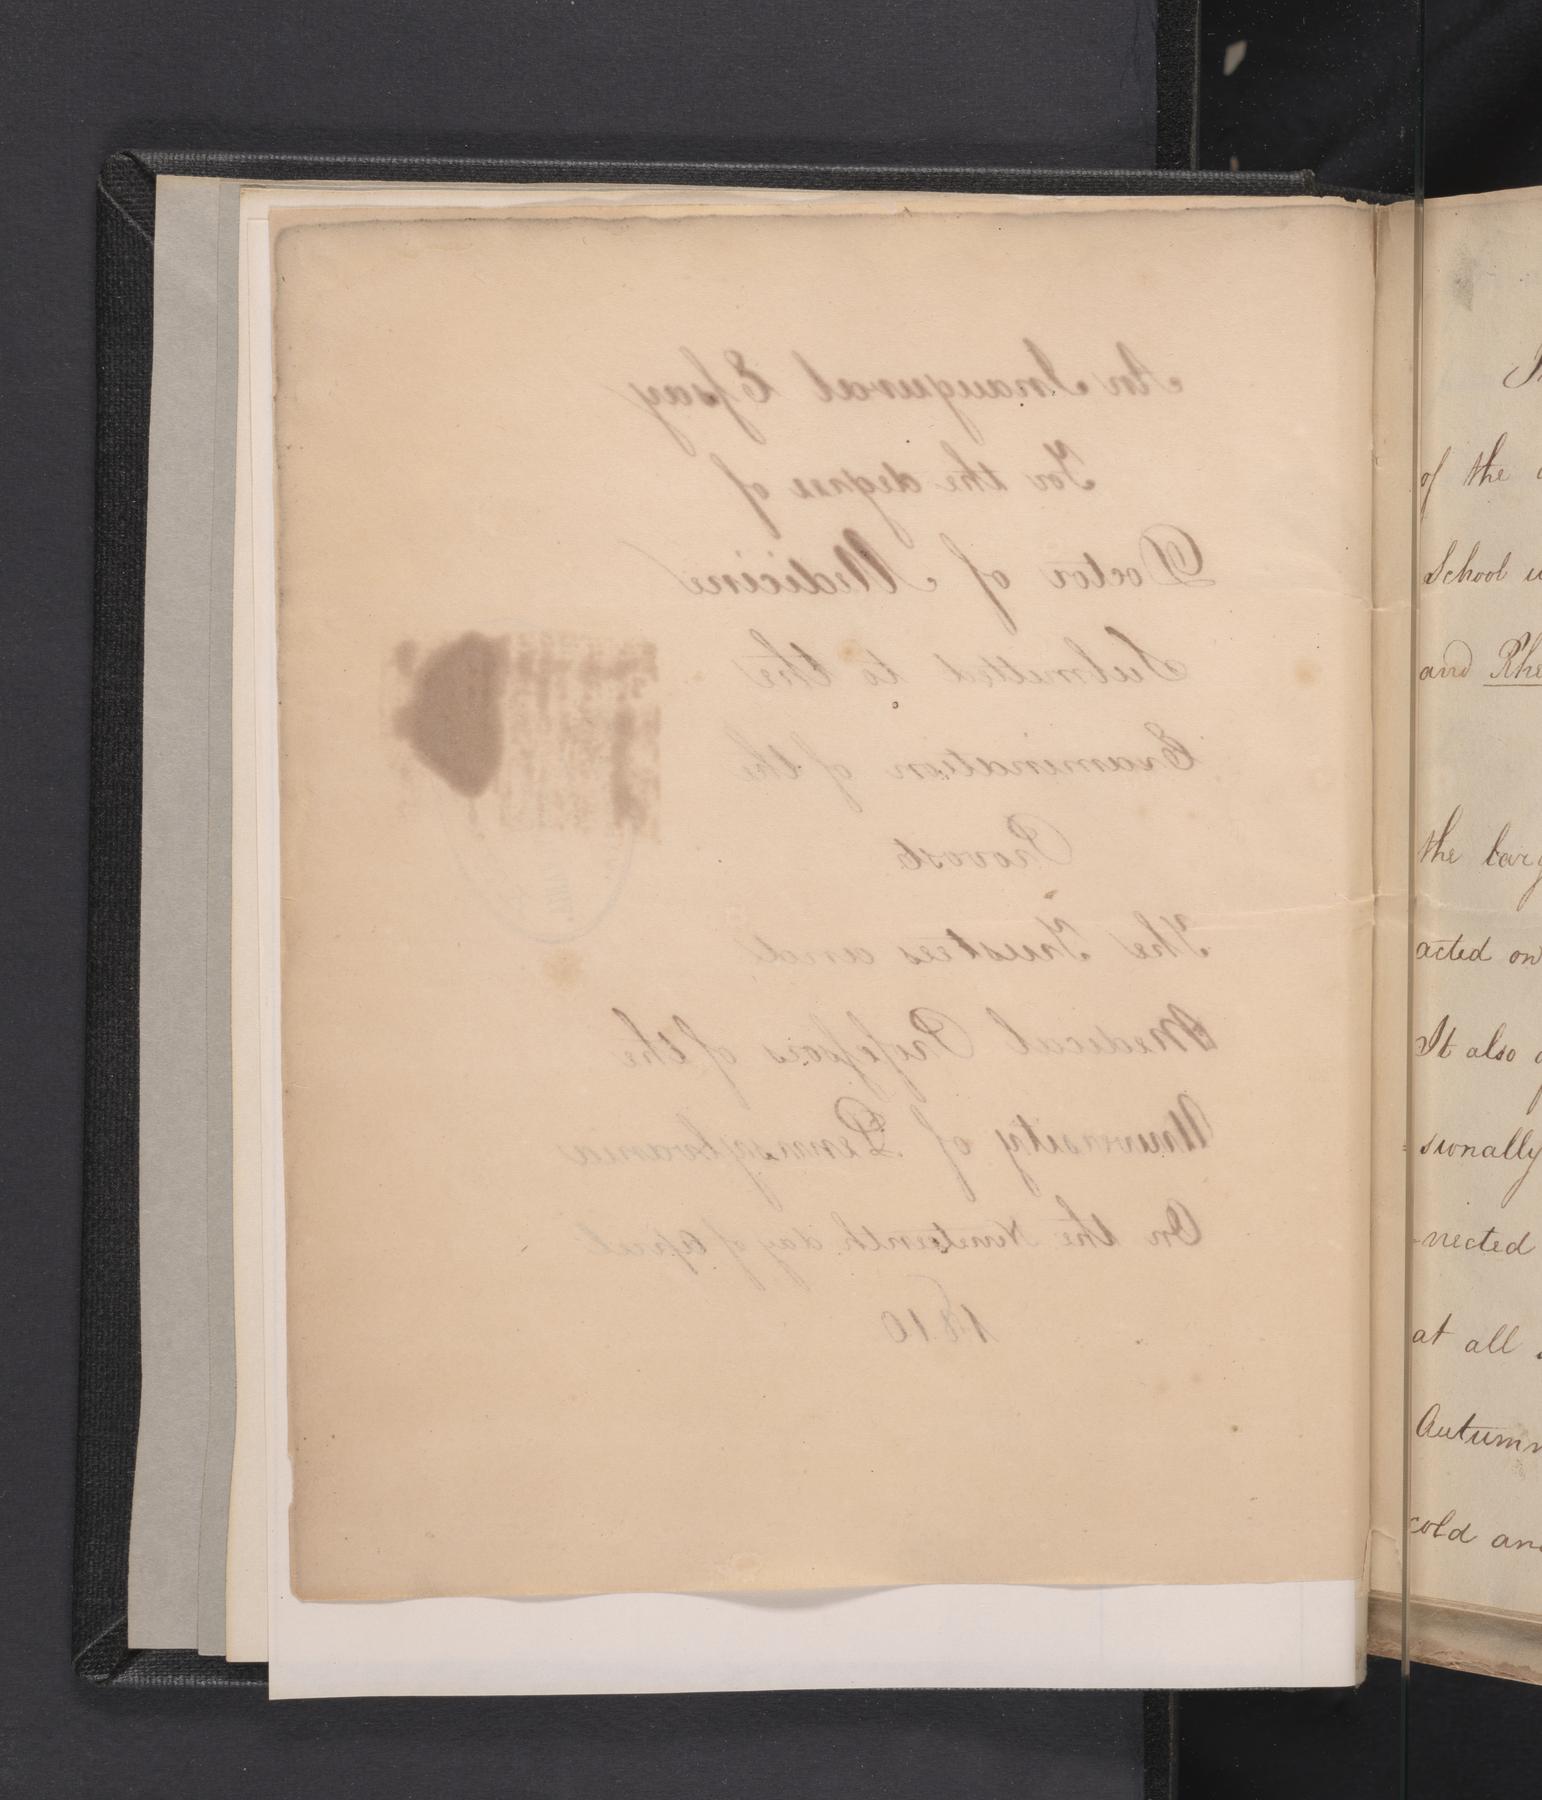 An Inaugural Essay
For the degree of
Doctor of Medicine
Submitted to the
Examination of the
Provost
The Trustees and
Medical Professors of the
University of Pennsylvania
On the Nineteenth day of April
1810
of the
School
and Rhe
the larg
acted on
It also
sionally
-nected
at all
Autumn
cold and